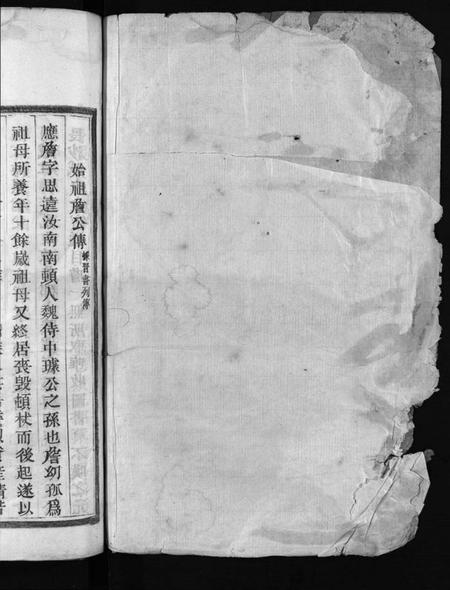 始祖詹公傳 錄晉書列傳
應詹字思遠汝南南頓人魏侍中璩公之孫也詹幼孤爲
祖母所養年十餘歲祖母又終居喪毀頓杖而後起遂以